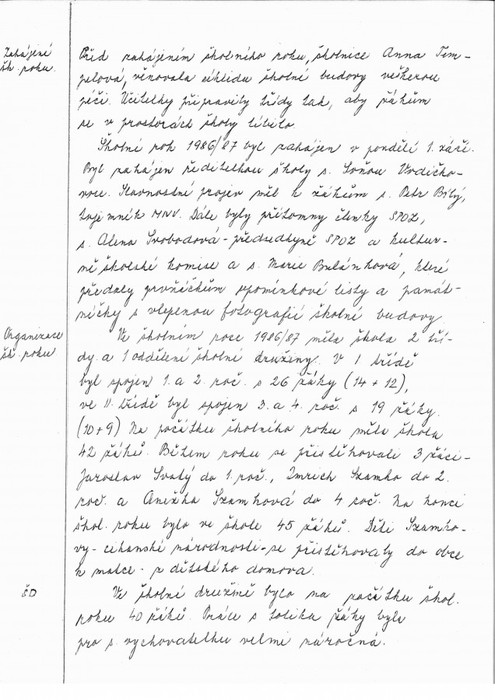 Zahájení
šk. roku.
Před zahájením školního roku, školnice Anna Tem-
pelová, věnovala úklidu školní budovy veškerou
péči. Učitelky připravily třídy tak, aby žákům
se v prostorách školy líbilo.
Školní rok 1986/87 byl zahájen v pondělí 1. září.
Byl zahájen ředitelkou školy s. Soňou Vodičko-
vou. Slavnostní projev měl k žákům s. Petr Bílý,
tajemník MNV. Dále byly přítomny členky SPOZ,
s. Alena Svobodová - předsedkyně SPOZ a kultur-
ně školské komise a s. Marie Bulánková, které
předaly prvňáčkům upomínkové listy a památ-
níčky s vlepenou fotografií školní budovy.
Organizace
šk. roku
Ve školním roce 1986/87 měla škola 2 tří-
dy a 1 oddělení školní družiny. V I. třídě
byl spojen 1. a 2. roč. s 26 žáky (14 + 12),
ve II. třídě byl spojen 3. a 4. roč. s 19 žáky.
(10 + 9) Na počátku školního roku měla škola
42 žáků. Během roku se přistěhovali 3 žáci -
Jaroslav Svatý do 1. roč., Imrich Szamko do 2.
roč. a Anežka Szamková do 4. roč. Na konci
škol. roku bylo ve škole 45 žáků. Děti Szamko-
vy - cikánské národnosti - se přistěhovaly do obce
k matce - z dětského domova.
ŠD
Ve školní družině bylo na počátku škol.
roku 40 žáků. Práce s tolika žáky byla
pro s. vychovatelku velmi náročná.